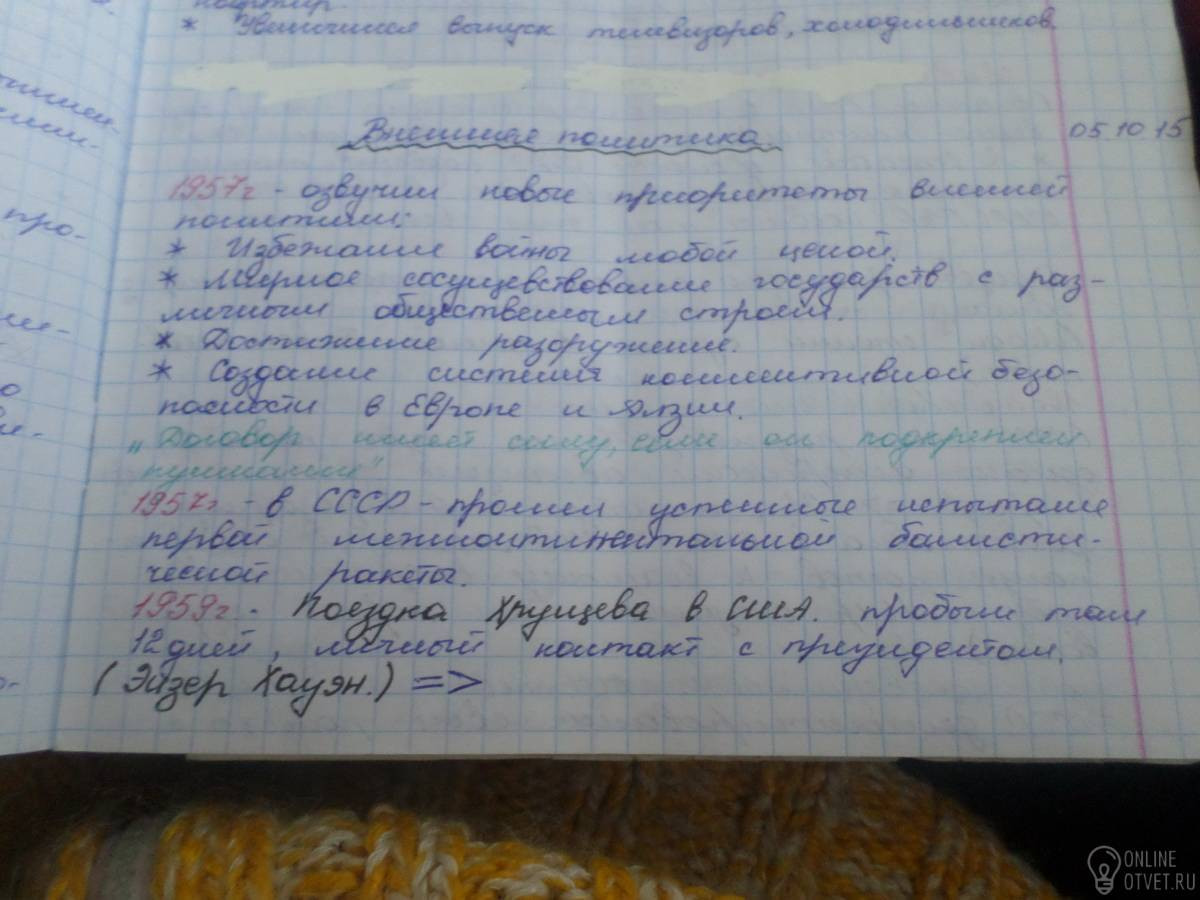 * Увеличился выпуск телевизоров, холодильников.
Внешняя политика
05.10.15
1957г - озвучил новые приоритеты внешней
политики:
* Избежание войны любой ценой.
* Мирное сосуществование государств с раз-
личным общественным строем.
* Достижение разоружения.
* Создание системы коллективной безо-
пасности в Европе и Азии.
„Договор имеет силу, если он подкреплен
пушками"
1957г - в СССР - прошли успешные испытание
первой межконтинентальной балисти-
ческой ракеты.
1959г. Поездка Хрущева в США. пробыл там
12 дней, личный контакт с президентом.
(Эйзер Хауэн.) =>
про-
ONLINE
OTVET.RU